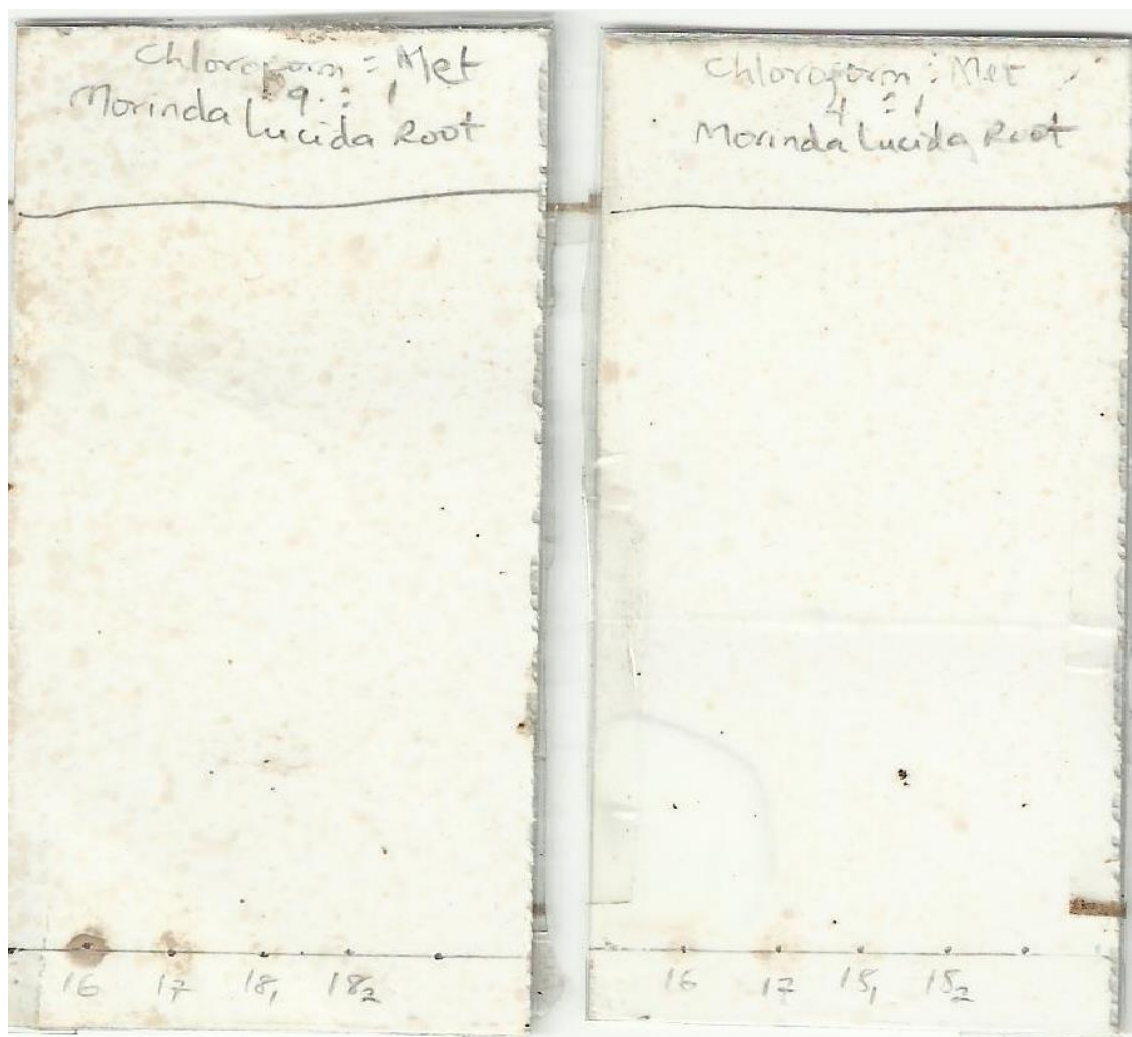 Chloroform : Met
9 : 1
Morinda Lucida Root
16 17 18₁ 18₂
Chloroform : Met
4 : 1
Morinda Lucida Root
16 17 15₁ 15₂